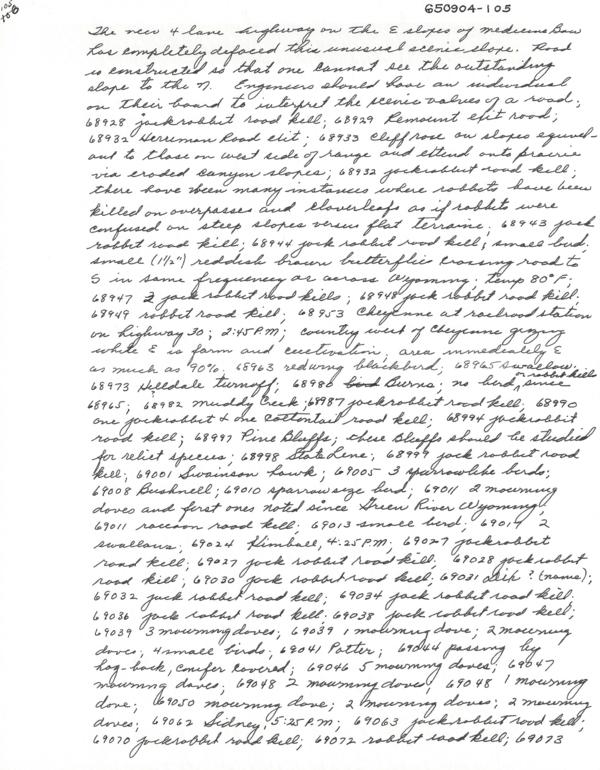 105
to 8
650904-105
The new 4 lane highway on the E slopes of medicine Bow
has completely defaced this unusual scenic slope. Road
is constructed so that one cannot see the outstanding
slope to the N. Engineers should have an individual
on their board to interpret the scenic values of a road;
68928 jackrabbit road kill; 68929 Remount exit road;
68932 Herriman Road exit; 68933 cliffrose on slopes equivel-
ant to those on west side of range and extend onto prairie
via eroded canyon slopes; 68932 jackrabbit road kill;
there have been many instances where rabbits have been
killed on overpasses and cloverleafs as if rabbits were
confused on steep slopes versus flat terraine; 68943 jack
rabbit road kill; 68944 jack rabbit road kill; small bird.
small (1½") reddish brown butterflies crossing road to
S in same frequency as across Wyoming; temp 80°F;
68947 2 jack rabbit road kills; 68948 jack rabbit road kill;
68949 rabbit road kill; 68953 Cheyenne at railroad station
on highway 30; 2:45 P.M; country west of Cheyenne grazing
while E is farm and cultivation, area immediately E
as much as 90%; 68963 redwing blackbird; 68965 swallow;
68973 Hilldale turnoff; 68980 bird Burns; no bird or rabbit kills since
68965; 68982 muddy Creek; 68987 jackrabbit road kill; 68990
one jackrabbit + one cottontail road kill; 68994 jackrabbit
road kill; 68997 Pine Bluffs; these Bluffs should be studied
for relict species; 68998 State Line; 68999 jack rabbit road
kill; 69001 Swainson hawk; 69005 3 sparrowlike birds;
69008 Bushnell; 69010 sparrow size bird; 69011 2 mourning
doves and first ones noted since Green River Wyoming;
69011 raccoon road kill; 69013 small bird; 69017 2
swallows; 69024 Kimball, 4:25 P.M; 69027 jackrabbit
road kill; 69027 jack rabbit road kill; 69028 jack rabbit
road kill; 69030 jack rabbit road kill; 69031 Dix ? (name);
69032 jack rabbit road kill; 69034 jack rabbit road kill;
69036 jack rabbit road kill; 69038 jack rabbit road kill;
69039 3 mourning doves; 69039 1 mourning dove; 2 mourning
doves; 4 small birds; 69041 Potter; 69044 passing by
hog-back, conifer covered; 69046 5 mourning doves; 69047
mourning doves; 69048 2 mourning doves; 69048 1 mourning
dove; 69050 mourning dove; 2 mourning doves; 2 mourning
doves; 69062 Sidney, 5:25 P.M; 69063 jackrabbit road kill;
69070 jackrabbit road kill; 69072 rabbit road kill; 69073